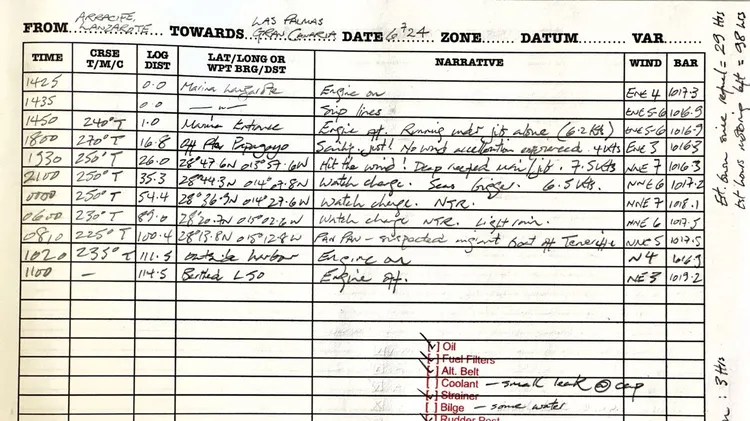 FROM ARRACIFE, LANZAROTE TOWARDS LAS PALMAS GRAN CANARIA DATE 6/7/24 ZONE DATUM VAR
TIME CRSE T/M/C LOG DIST LAT/LONG OR WPT BRG/DST NARRATIVE WIND BAR
1425 0.0 Marina Lanzarote Engine on ENE 4 1017.3
1435 0.0 — " — Slip lines ENE 5-6 1016.9
1450 240°T 1.0 Marina Entrance Engine off. Running under jib alone (6.2 kts) ENE 5-6 1016.9
1800 270°T 16.8 Off Pta Papagayo Sailing, just! No wind acceleration experienced. 4 kts ENE 3 1016.3
1930 250°T 26.0 28°47.6N 013°57.6W Hit the wind! Deep reefed main/jib. 7.5 kts NNE 7 1016.3
2100 250°T 35.3 28°44.3N 014°07.8N Watch change. Seas bigger. 6.5 kts. NNE 6 1017.2
0000 250°T 54.4 28°36.9N 014°27.6W Watch change. NTR. NNE 7 1018.1
0600 230°T 89.0 28°20.7N 015°02.6W Watch change NTR. Light rain. NNE 6 1017.5
0810 225°T 100.4 28°13.8N 015°12.8W Pan Pan - suspected migrant boat off Tenerife NNE 5 1017.5
1020 235°T 111.5 outside harbour Engine on N 4 1016.9
1100 — 114.5 Berthed L50 Engine off. NE 3 1019.2
[✓] Oil
[✓] Fuel Filters
[✓] Alt. Belt
[ ] Coolant - small leak @ cap
[✓] Strainer
[ ] Bilge - some water
Rudder Post
Est. burn since refuel = 29 Hrs
Est hours motoring left = 98 Hrs
: 3 Hrs